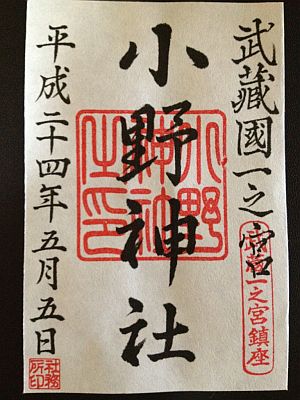 武藏國一之宮
一之宮鎮座
小野神社
小野
之印
平成二十四年五月五日
社務
所印